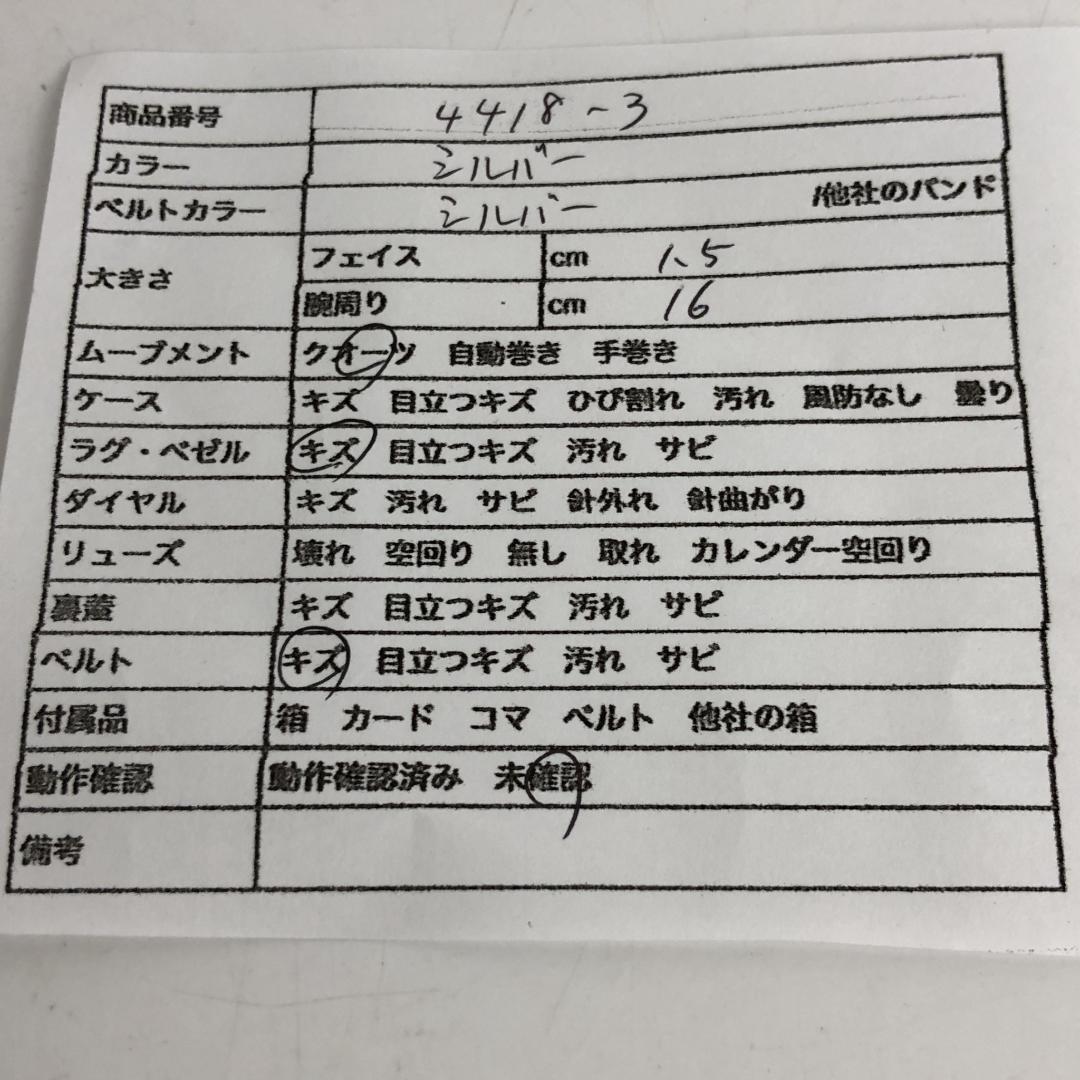 商品番号 4418-3
カラー シルバー
ベルトカラー シルバー /他社のバンド
大きさ フェイス cm 1.5
腕周り cm 16
ムーブメント クオーツ 自動巻き 手巻き
ケース キズ 目立つキズ ひび割れ 汚れ 風防なし 曇り
ラグ・ベゼル キズ 目立つキズ 汚れ サビ
ダイヤル キズ 汚れ サビ 針外れ 針曲がり
リューズ 壊れ 空回り 無し 取れ カレンダー空回り
裏蓋 キズ 目立つキズ 汚れ サビ
ベルト キズ 目立つキズ 汚れ サビ
付属品 箱 カード コマ ベルト 他社の箱
動作確認 動作確認済み 未確認
備考